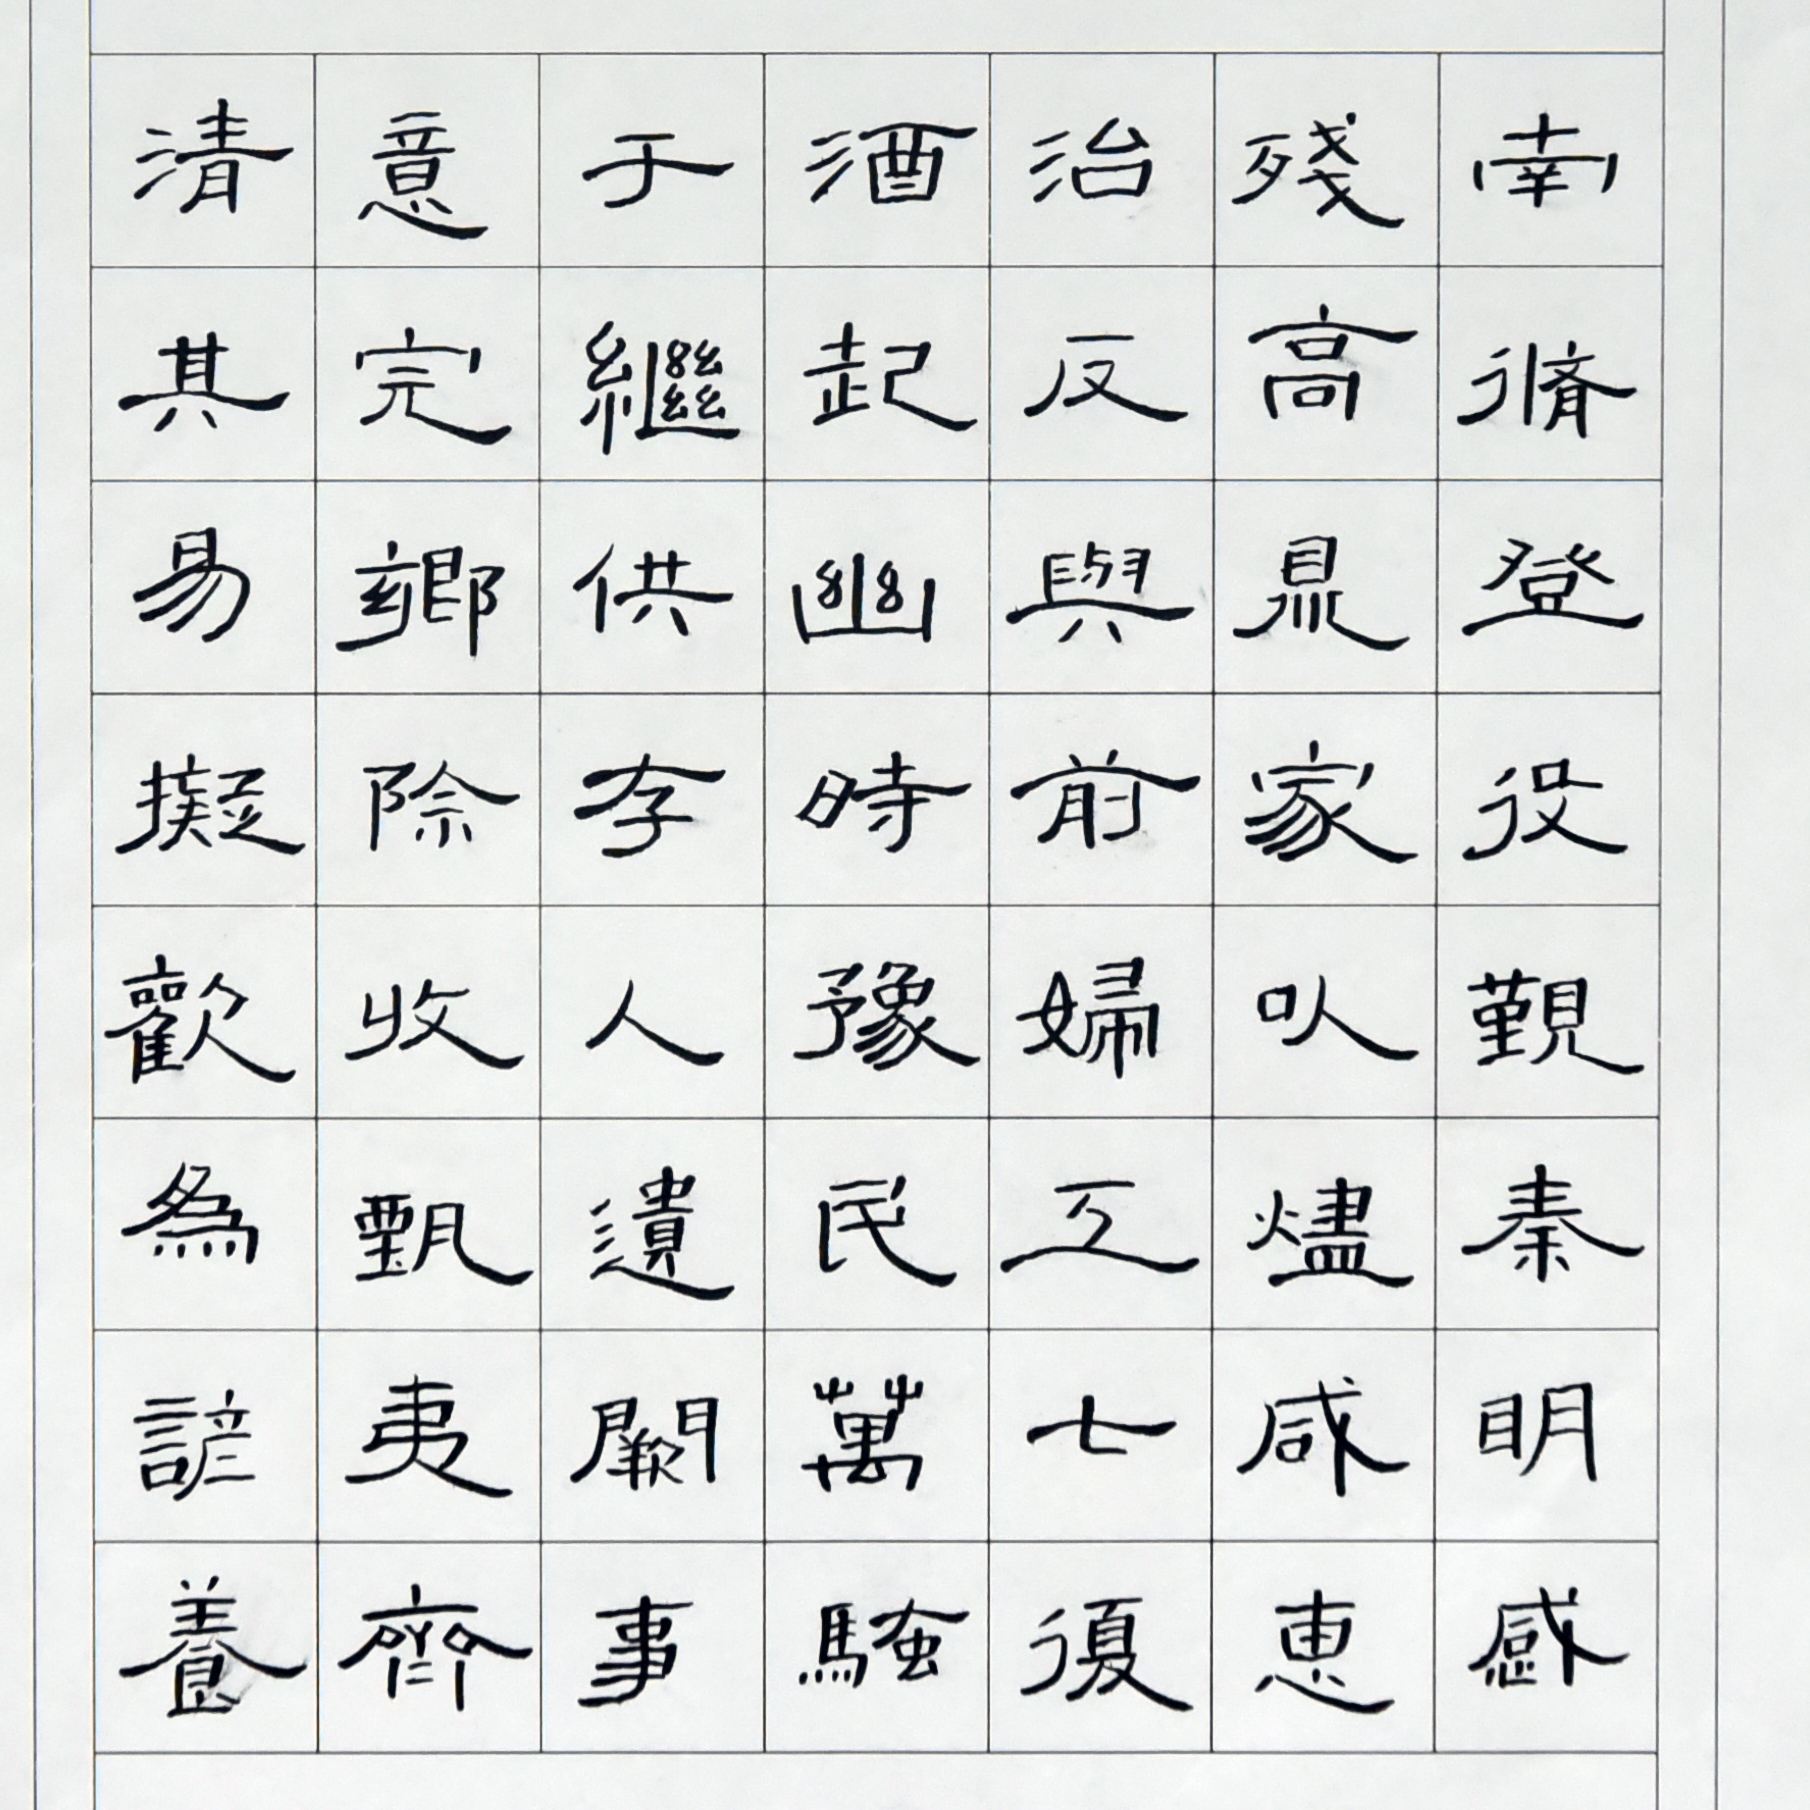 南脩登役覲秦明感
殘高鼎家以燼咸惠
治反與前婦工七復
酒起幽時豫民萬騷
于繼供存人遺闕事
意完鄉除收甄夷齊
清其易擬歡為諺養